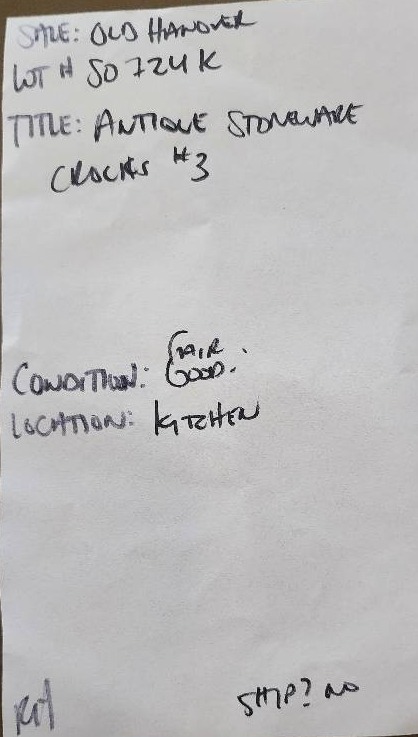 SALE: OLD HANOVER
LOT # 50724K
TITLE: ANTIQUE STONEWARE
CROCKS #3
FAIR.
CONDITION: GOOD.
LOCATION: KITCHEN
SHIP? NO